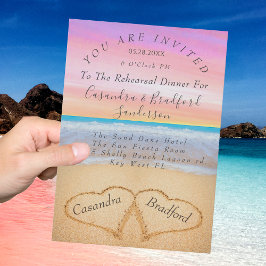 YOU ARE INVITED
05.28.20XX
6 O'Clock PM
To The Rehearsal Dinner For
Casandra & Bradford
Sanderson
The Sand Dune Hotel
The Sun Fiesta Room
5 Shelly Beach Lagoon rd
Key West Fl
Casandra
Bradford